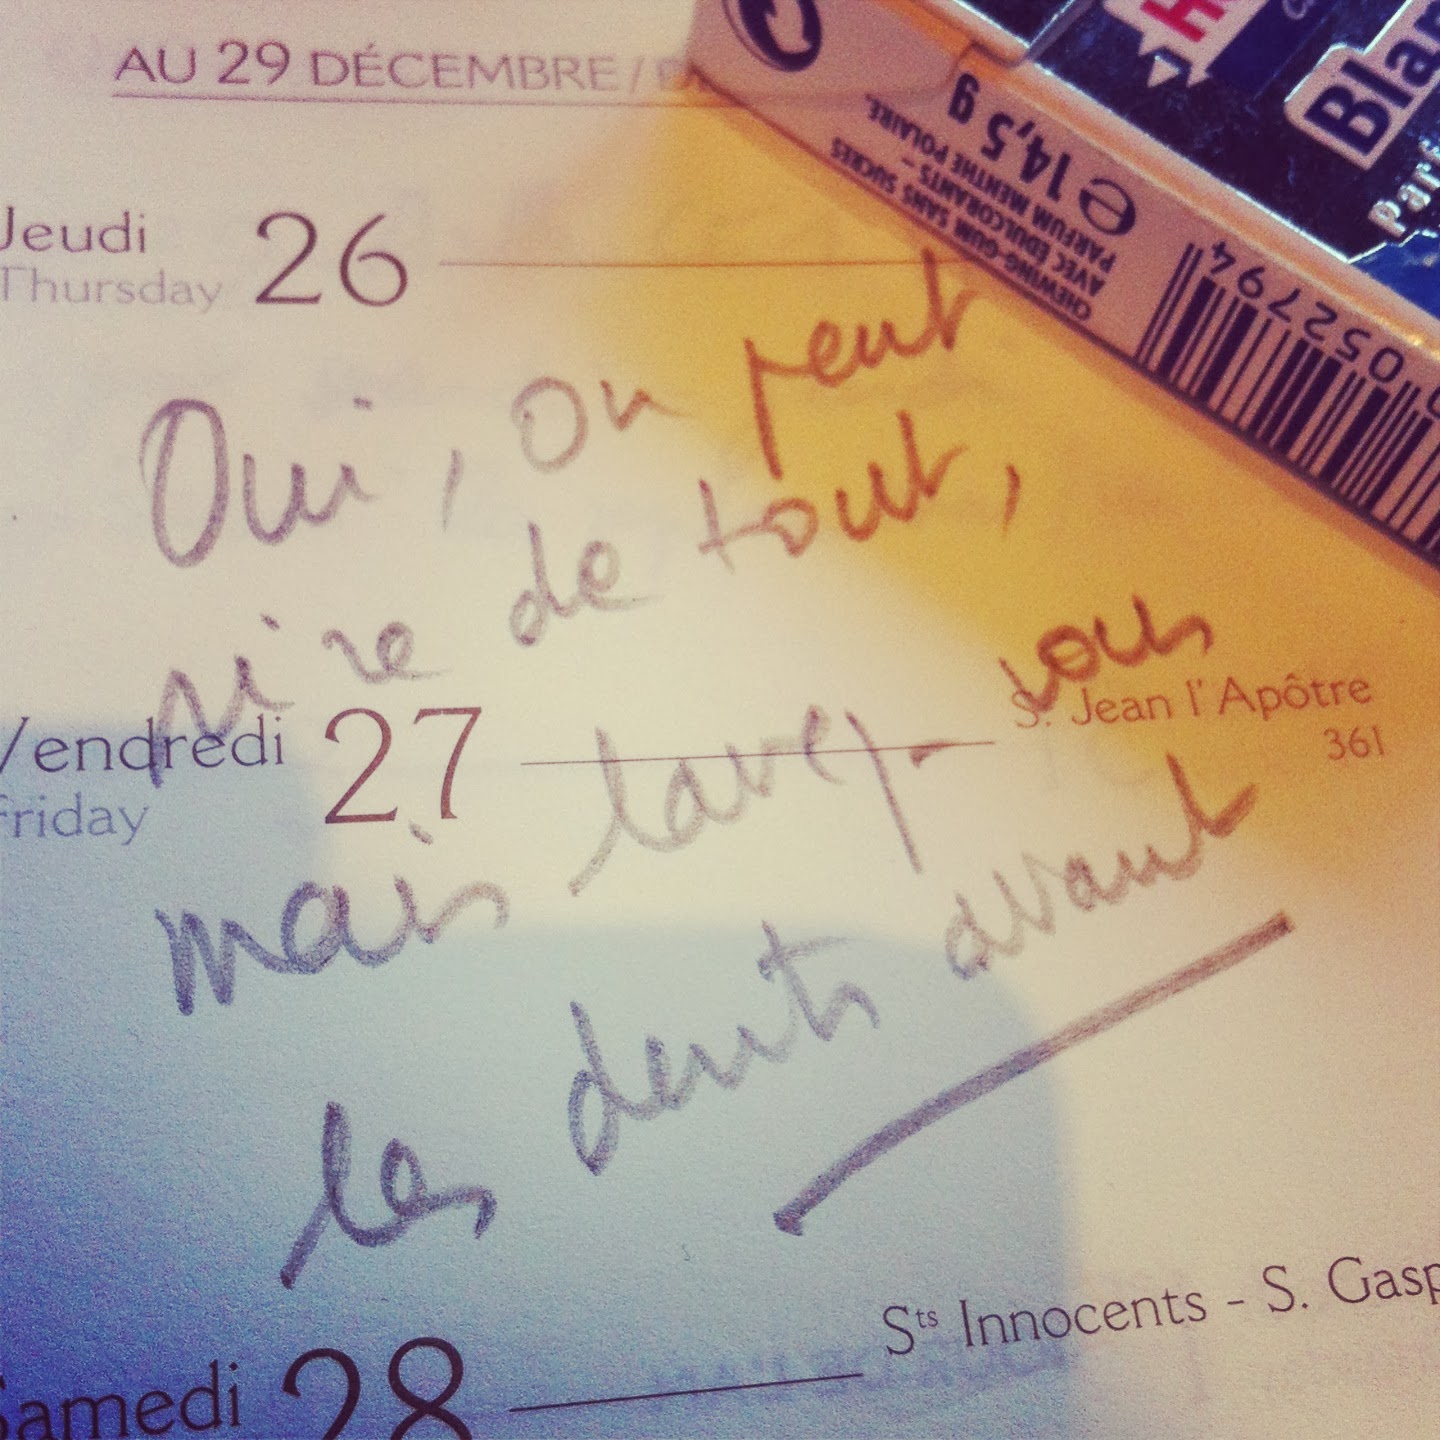 AU 29 DÉCEMBRE /
Jeudi 26
Thursday
Oui, on peut
rire de tout,
Vendredi 27
Friday
S. Jean l'Apôtre
361
mais lavez-vous
les dents avant
Samedi 28
Sts Innocents - S. Gasp
e 14,5 g
CHEWING-GUM SANS SUCRES
AVEC ÉDULCORANTS -
PARFUM MENTHE POLAIRE.
052794
Blan
Parf